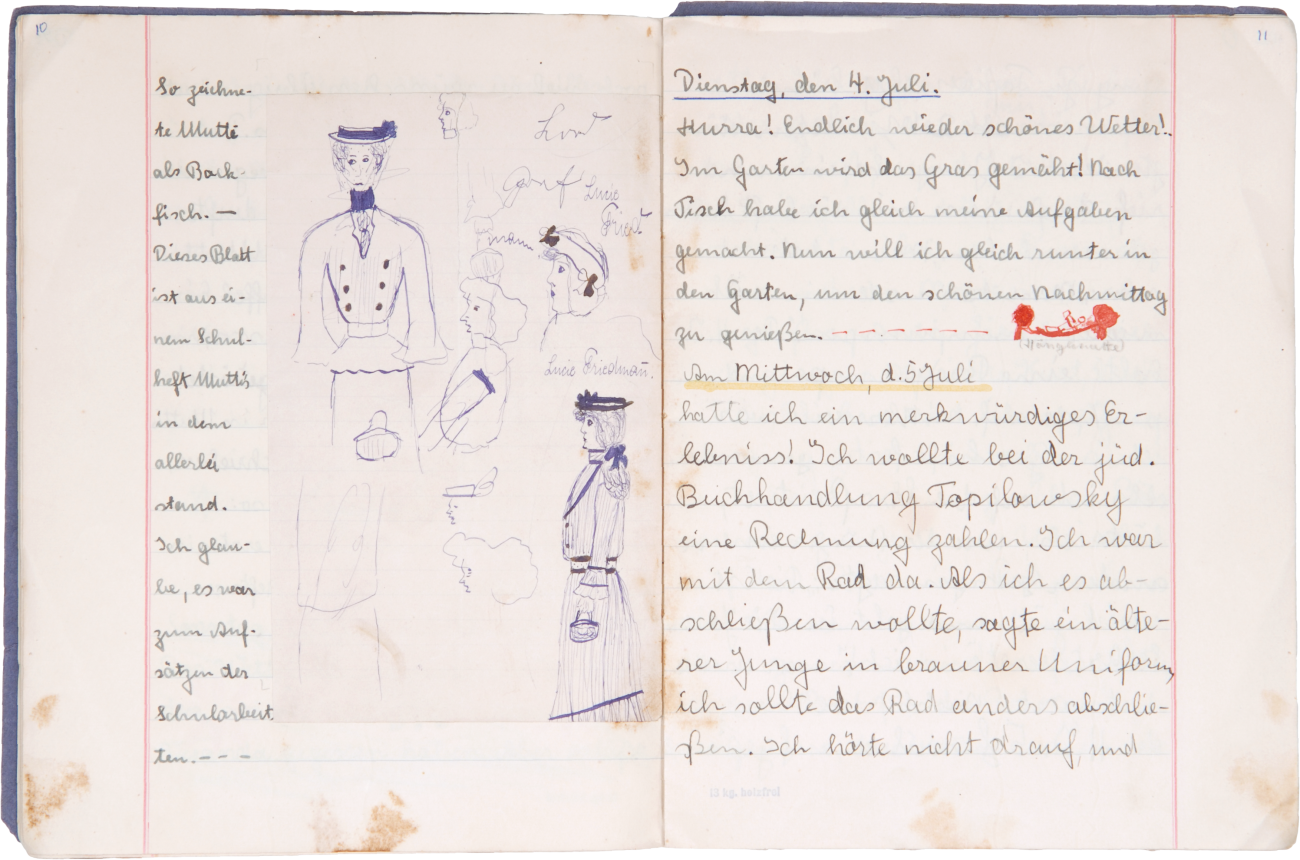 10
So zeichne-
te Mutti
als Back-
fisch. —
Dieses Blatt
ist aus ei-
nem Schul-
heft Muttis
in dem
allerlei
stand.
Ich glau-
be, es war
zum Auf-
sätzen der
Schularbeit
ten. - - -
Graf
Lucie
Fried
mann
Lucie Friedmañ.
11
Dienstag, den 4. Juli.
Hurra! Endlich wieder schönes Wetter!
Im Garten wird das Gras gemäht! Nach
Tisch habe ich gleich meine Aufgaben
gemacht. Nun will ich gleich runter in
den Garten, um den schönen Nachmittag
zu genießen. - - - - - - -
(Hängematte)
Am Mittwoch, d. 5 Juli
hatte ich ein merkwürdiges Er-
lebniss! Ich wollte bei der jüd.
Buchhandlung Topilowsky
eine Rechnung zahlen. Ich war
mit dem Rad da. Als ich es ab-
schließen wollte, sagte ein älte-
rer Junge in brauner Uniform,
ich sollte das Rad anders abschlie-
ßen. Ich hörte nicht drauf, und
12 kg. holzfrei